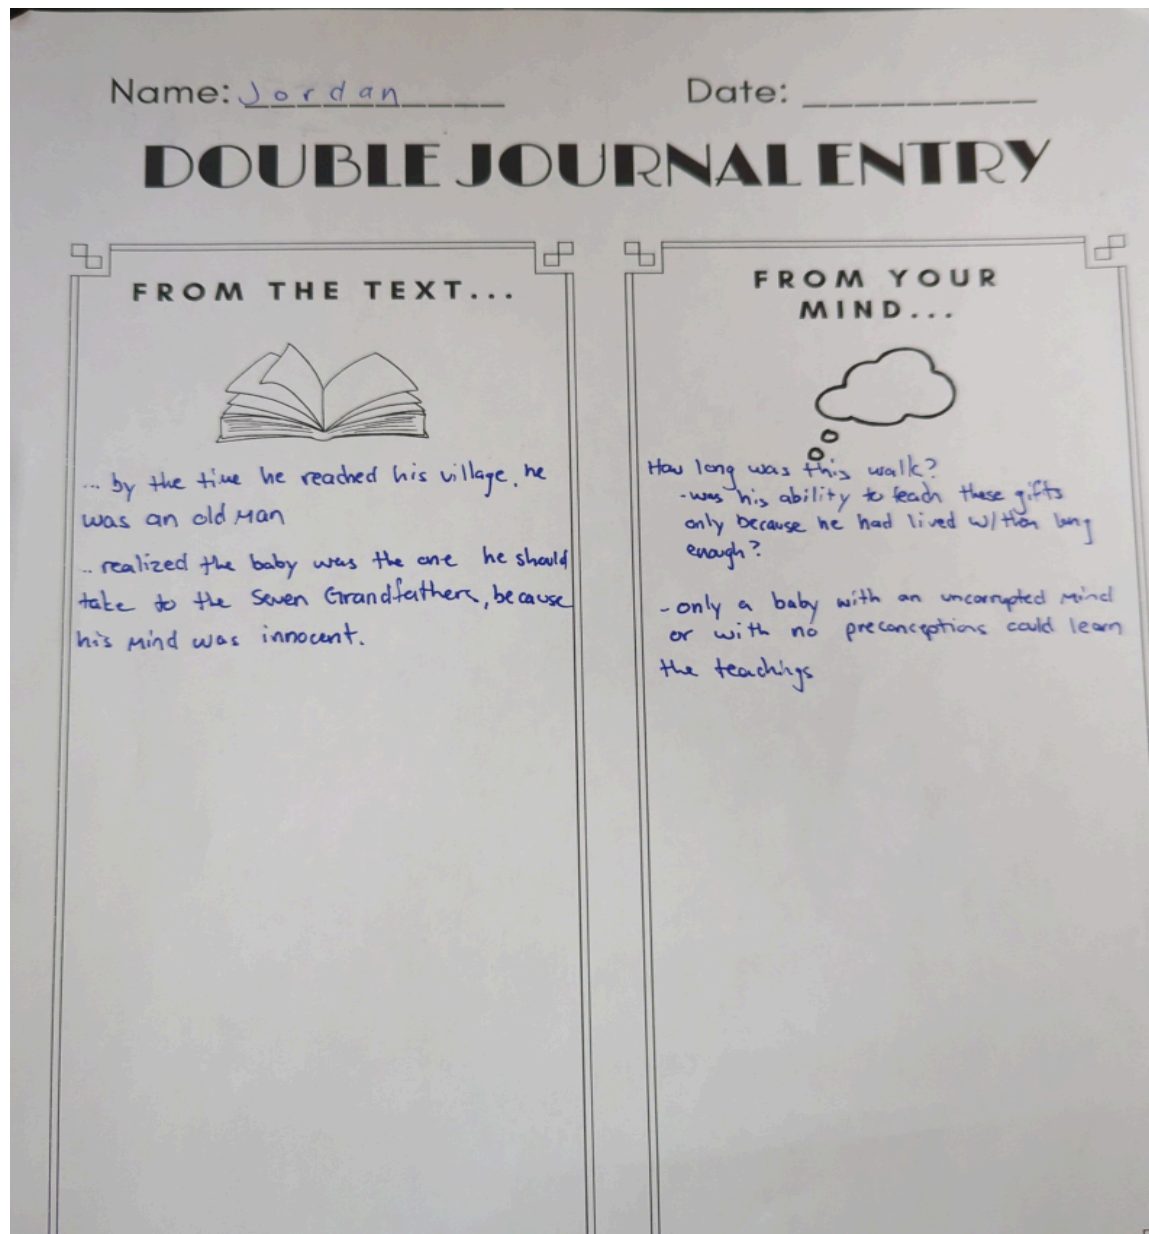 Name: Jordan
Date: __________
DOUBLE JOURNAL ENTRY
FROM THE TEXT...
... by the time he reached his village, he
was an old man
.. realized the baby was the one he should
take to the Seven Grandfathers, because
his mind was innocent.
FROM YOUR
MIND...
How long was this walk?
-was his ability to teach these gifts
only because he had lived w/ them long
enough?
- only a baby with an uncorrupted mind
or with no preconceptions could learn
the teachings